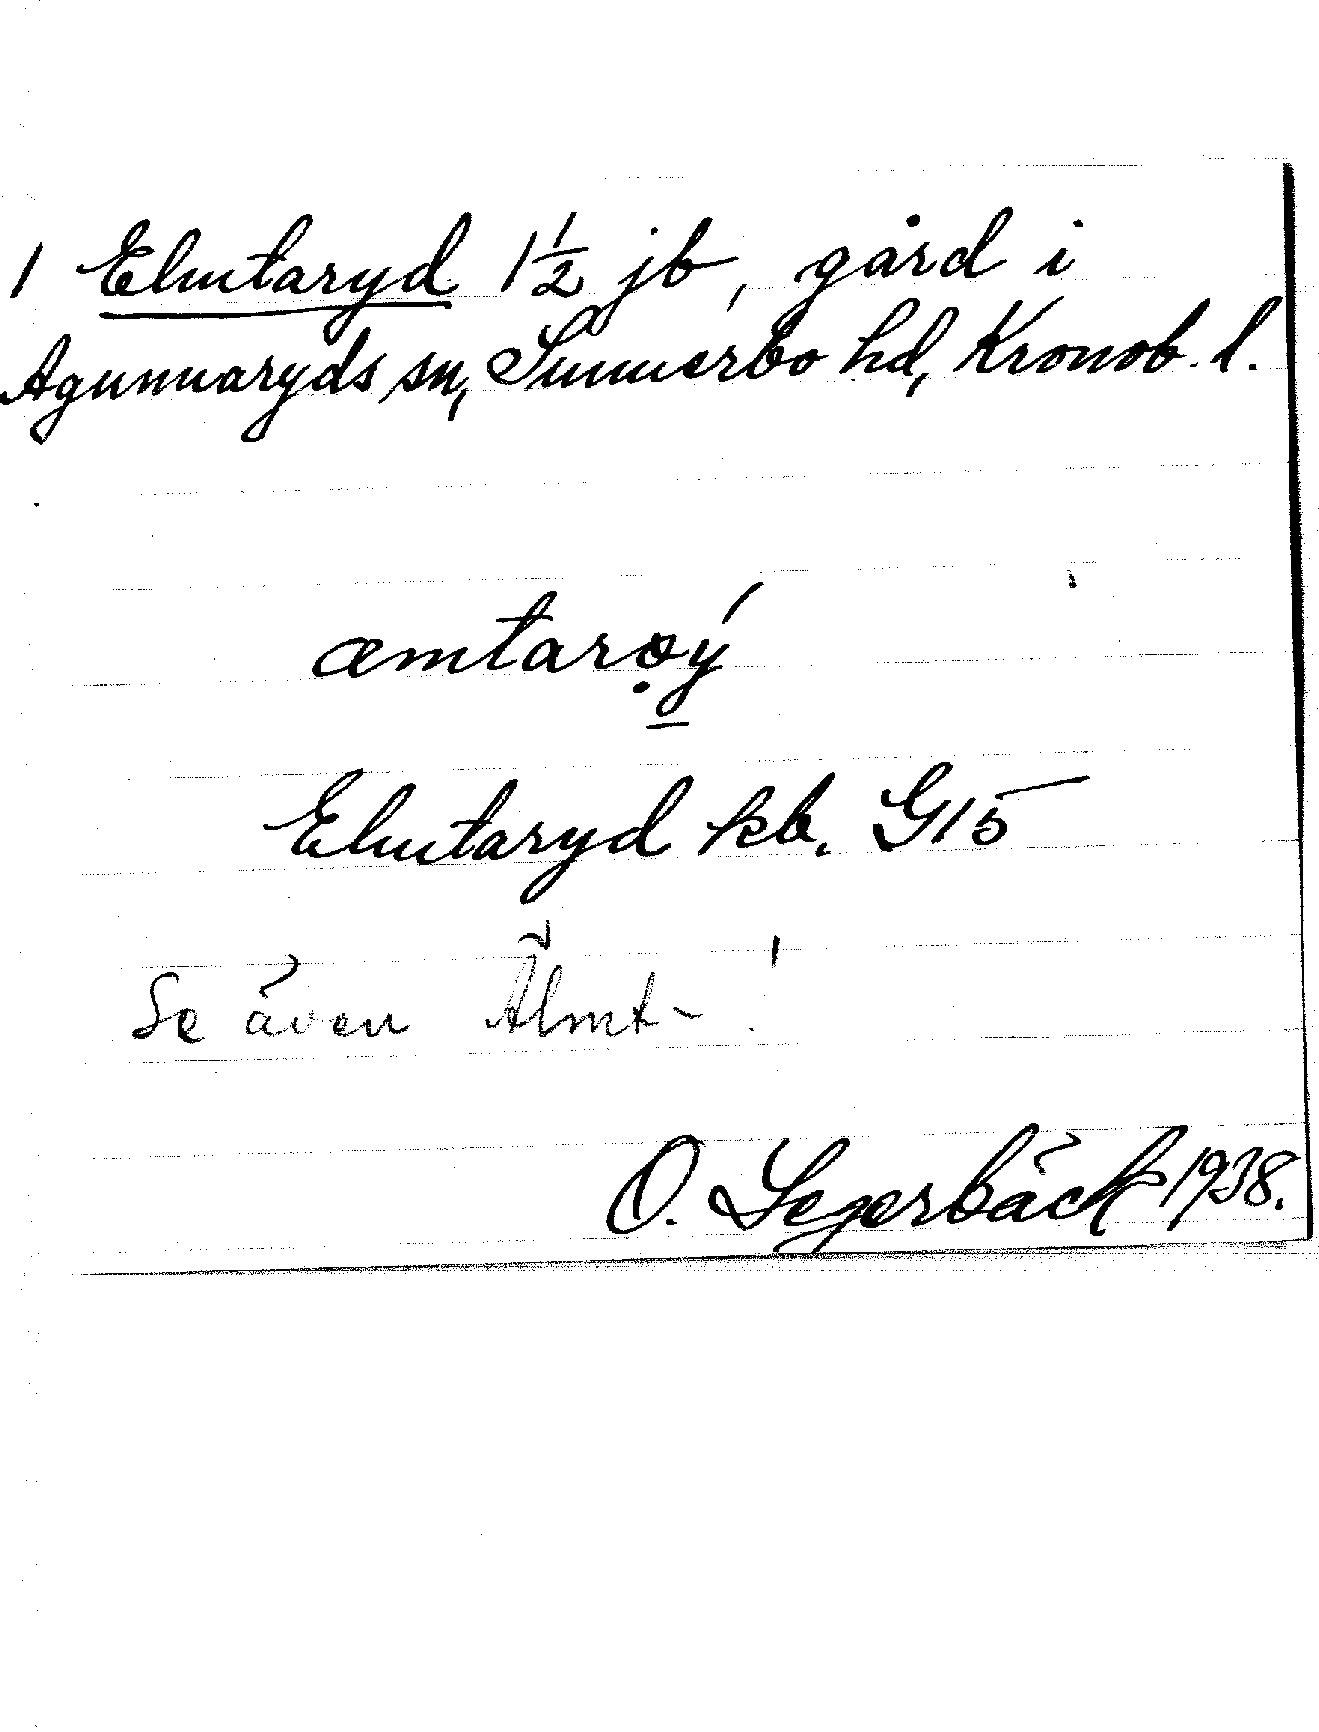 1 Elmtaryd 1½ jb, gård i
Agunnaryds sn, Sunnerbo hd, Kronob. l.
æmtarøý
Elmtaryd kb. G15
Se även Älmt- !
O. Segerbäck 1938.